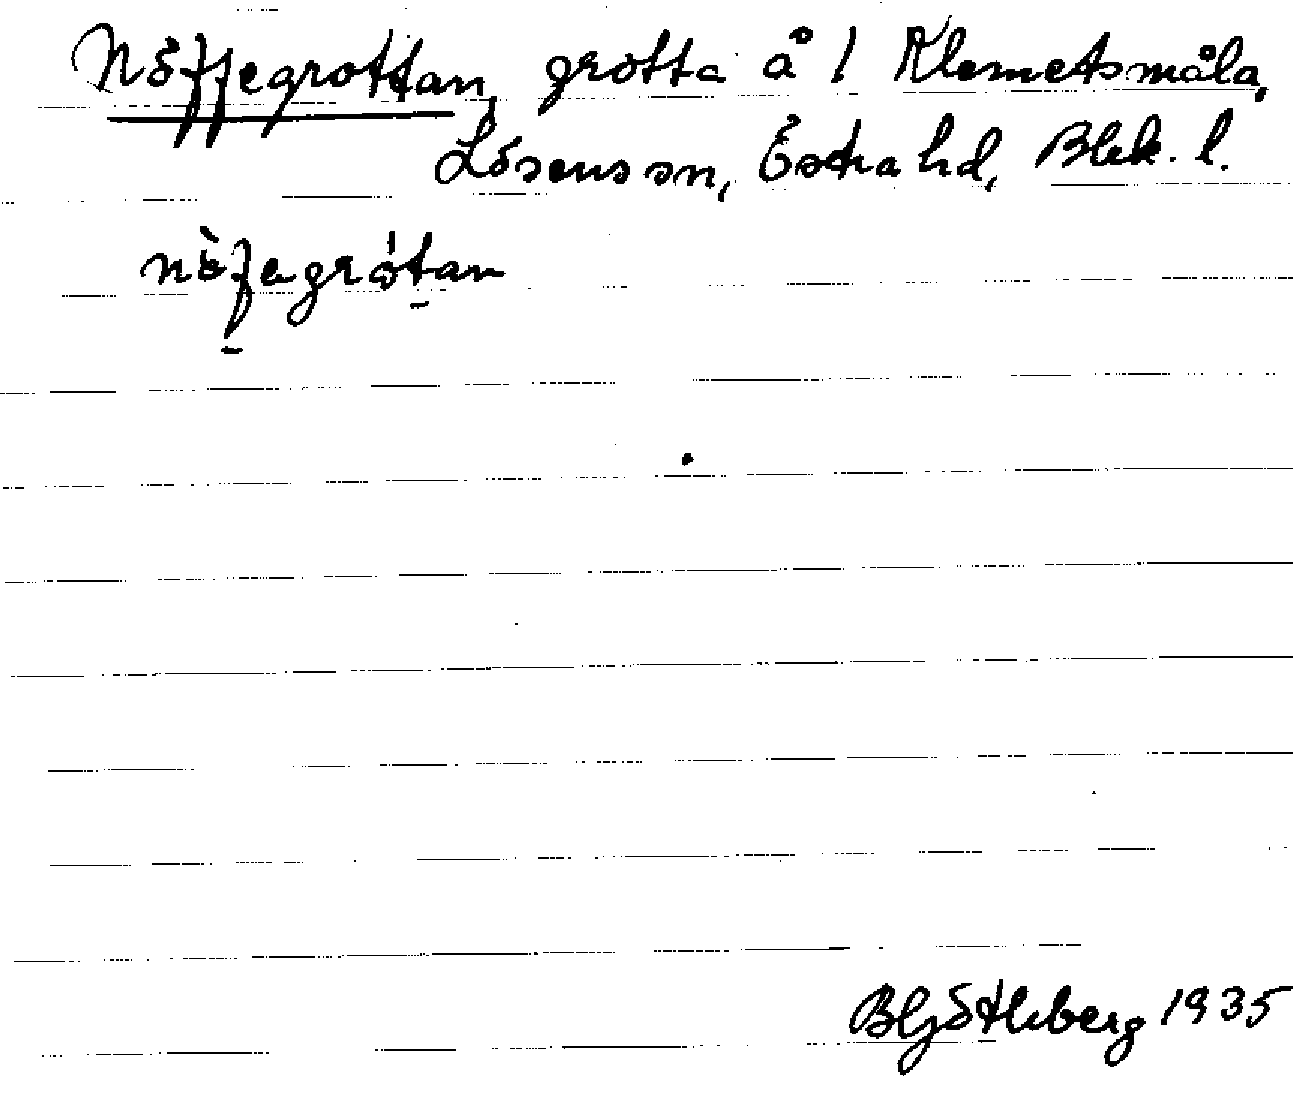 Nöffegrottan, grotta å 1 Klemetsmåla,
Lösenssn, Östra hd, Blek. l.
nòfegrótan
BGötlberg 1935